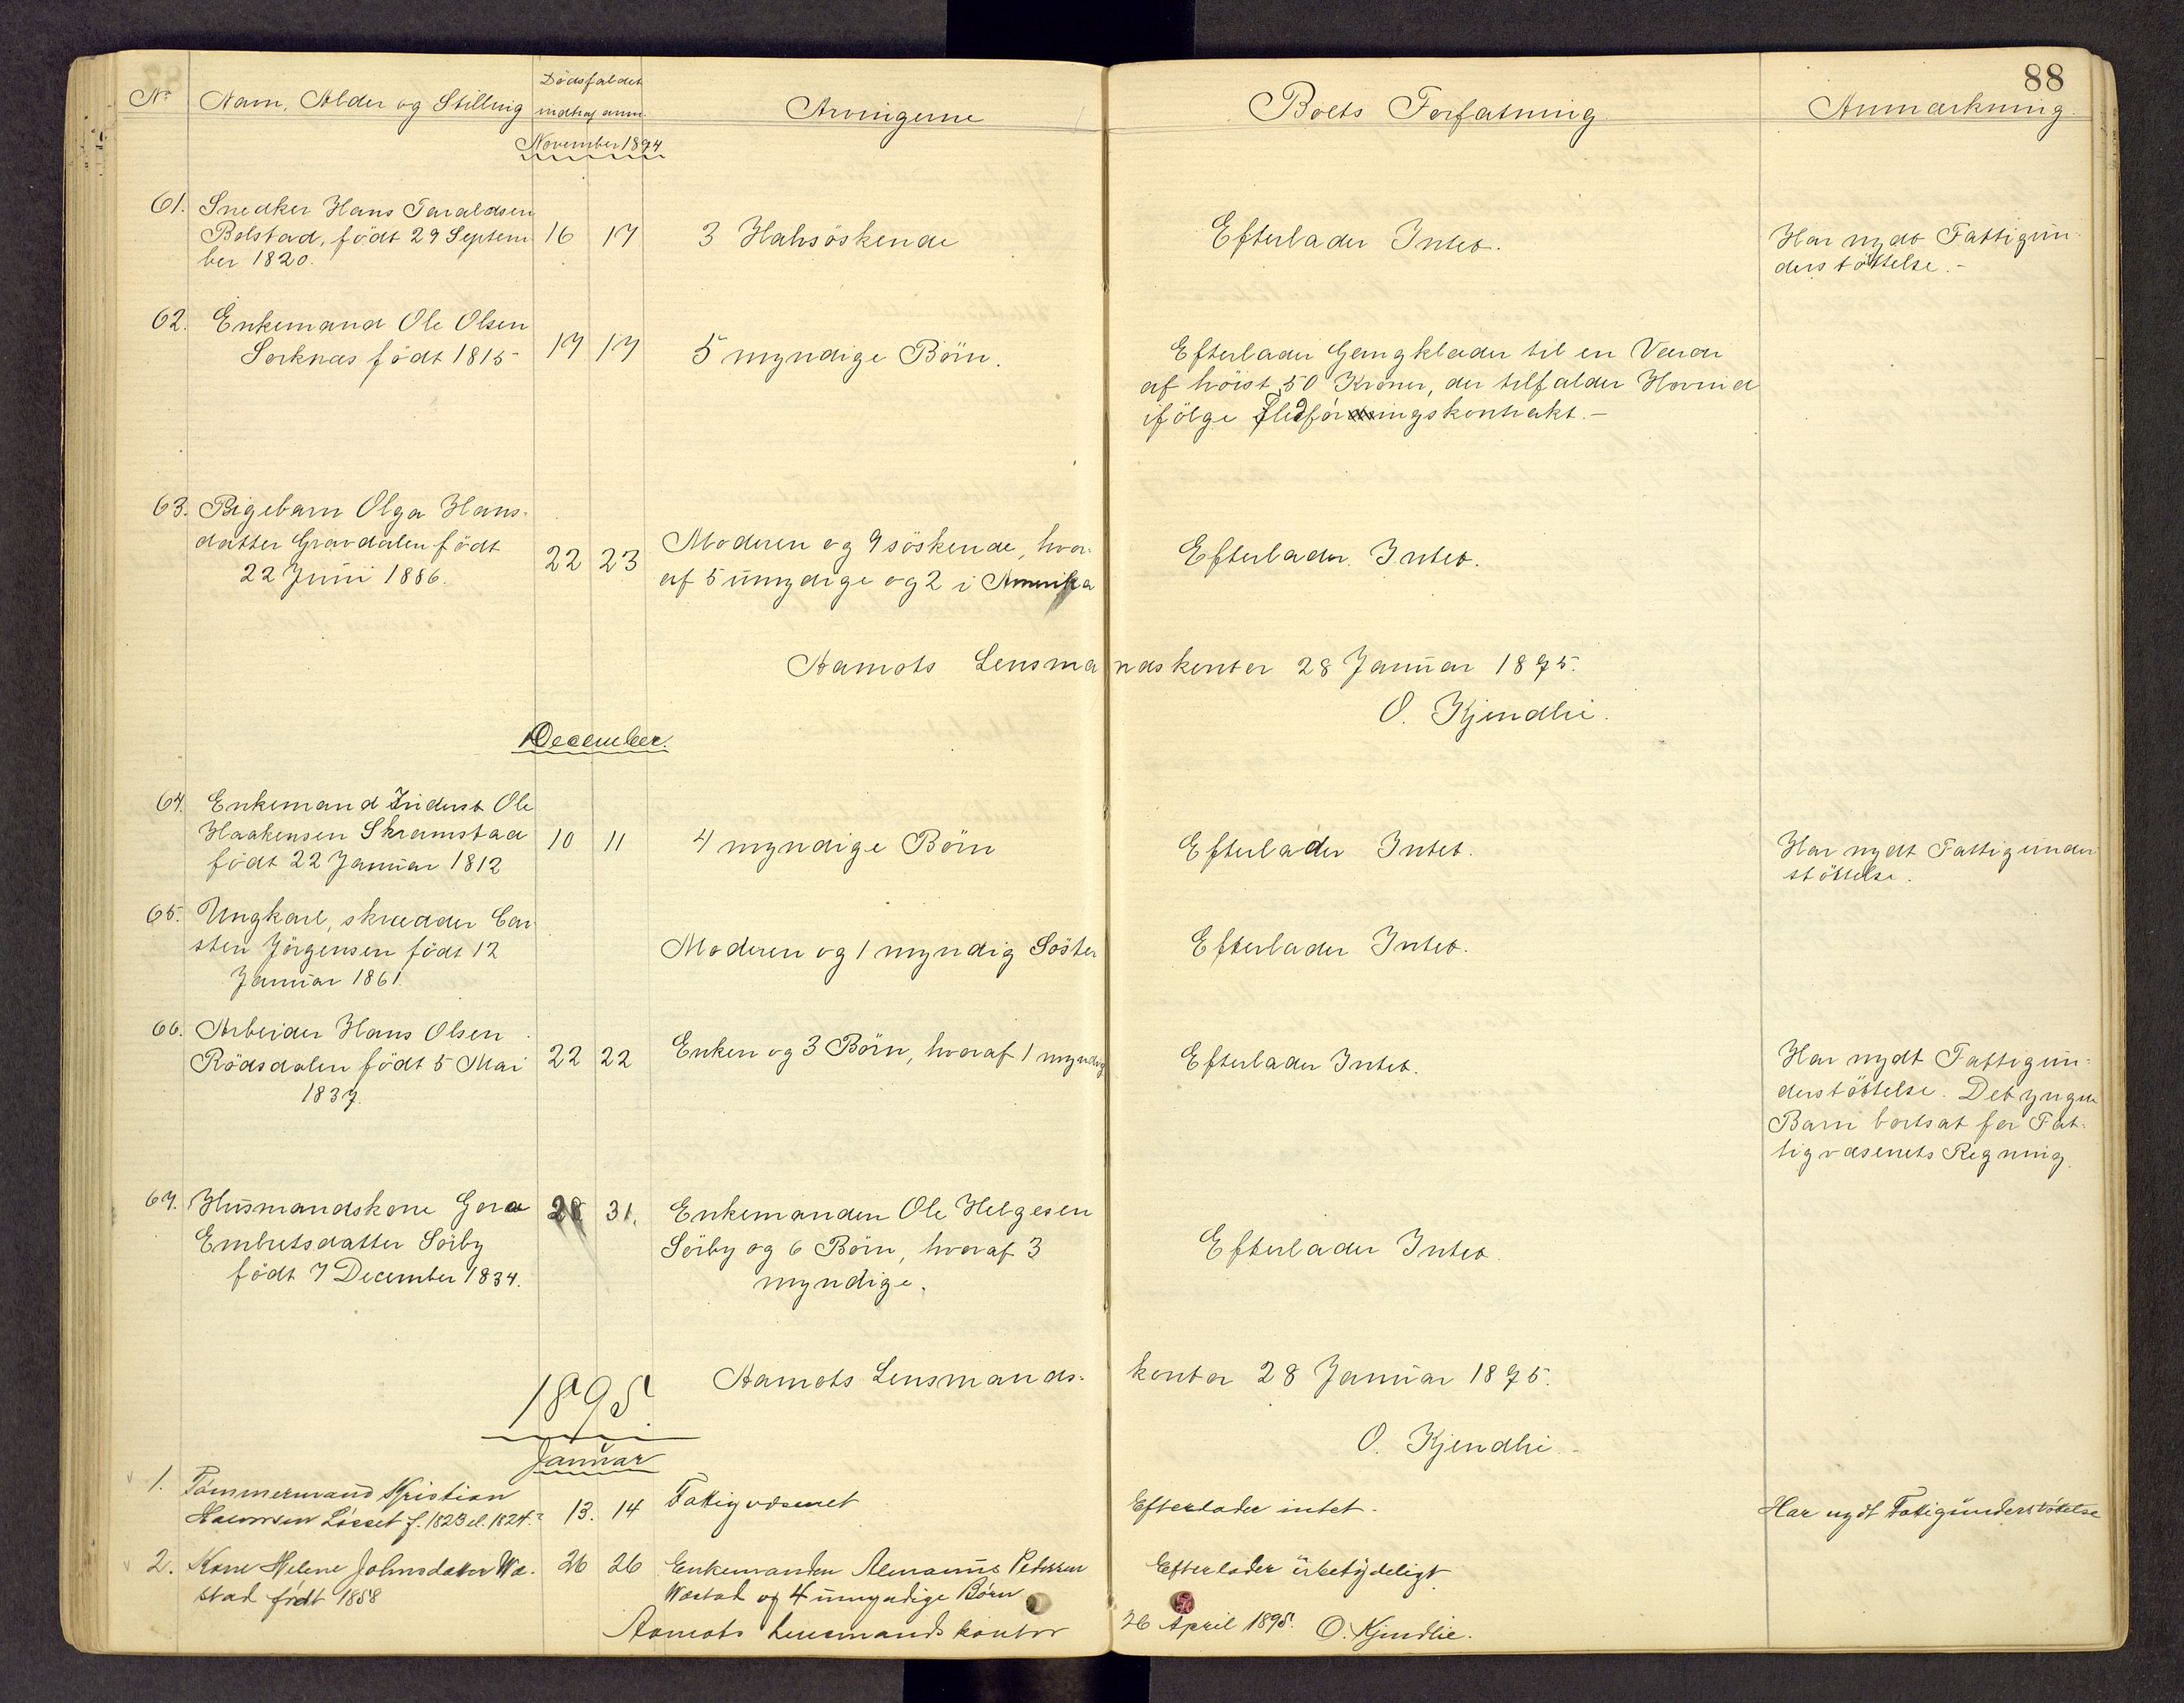 88
No Navn, Alder og Stilling Dödsfaldet
indtraf anm. Arvingerne Boets Forfatning Anmærkning
November 1894
61. Snedker Hans Taraldsen
Bolstad, födt 29 Septem 16 17 3 Halvsöskende Efterlader Intet. Har nydt Fattigun-
ber 1820. derstöttelse.-
62. Enkemand Ole Olsen
Sorknæs födt 1815 17 17 5 myndige Börn. Efterlader Gangklæder til en Værdi
af höist 50 Kroner, der tilfalder Hovind
ifölge Fledföringskontrakt.-
63. Pigebarn Olga Hans-
datter Gravdalen födt 22 23 Moderen og 9 söskende, hvor- Efterlader Intet.
22 Juni 1886. af 5 umyndige og 2 i Amerika
Aamots Lensmandskontor 28 Januar 1895.
O. Kjendlie.
December.
64. Enkemand Inderst Ole
Haakensen Skramstad 10 11 4 myndige Börn Efterlader Intet. Har nydt Fattigunder
födt 22 Januar 1812 stöttelse.
65. Ungkarl, skrædder Car-
sten Jörgensen födt 12 Moderen og 1 myndig Söster Efterlader Intet.
Januar 1861.
66. Arbeider Hans Olsen
Rödsdalen födt 5 Mai 22 22 Enken og 3 Börn, hvoraf 1 myndig Efterlader Intet. Har nydt Fattigun-
1837. derstöttelse. Det yngste
Barn bortsat for Fat-
tigvæsenets Regning.
67. Husmandskone Gora 28 31. Enkemanden Ole Helgesen
Embretsdatter Sörby Sörby og 6 Börn, hvoraf 3 Efterlader Intet.
födt 7 December 1834. myndige.
Aamots Lensmands- kontor 28 Januar 1895.
1895.
O. Kjendlie.-
Januar
1. Tömmermand Kristian 13. 14 Fattigvæsenet Efterlader intet. Har nydt Fattigunderstöttelse
Lösset f. 1823 el. 1824.
2. Kone Helene Johnsdatter Wæ- 26 26 Enkemanden Pedersen Efterlader übetydeligt.
stad födt 1858 Wæstad og 4 umyndige Börn
Aamots Lensmandskontor 26 April 1895. O. Kjendlie.